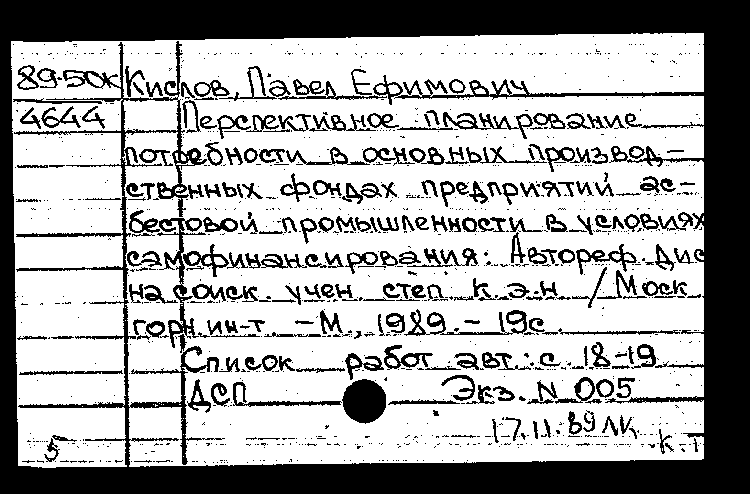 89-5ОК Кислов, Павел Ефимович
4644 Перспективное планирование
потребности в основных производ-
ственных фондах предприятий ас-
бестовой промышленности в условиях
самофинансирования: Автореф. Дис
на соиск. учен. степ к.э.н / Моск
горн.ин-т. -М., 1989.- 19с.
Список работ авт.: с. 18-19
ДСП Экз. N 005
17.11.89 ЛК
5 к.т